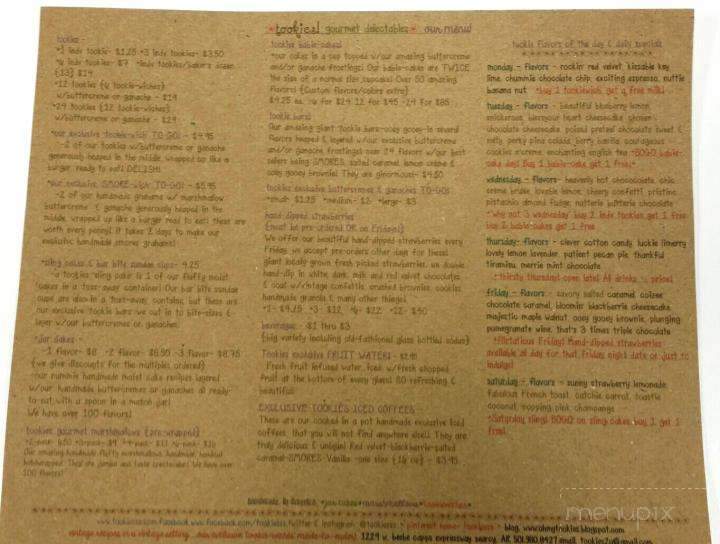 tookies! gourmet delectables our menu
tookies -
*1 indv tookie- $1.25 *3 indv tookies- $3.50
*12 tookies {6 tookie-wiches}
w/buttercreme or ganache - $14
*24 tookies {12 tookie-wiches}
w/buttercreme or ganache - $24
*our exclusive tookie-wich TO-GO! - $4.95
-2 of our tookies w/buttercreme or ganache
generously heaped in the middle, wrapped up like a
burger, ready to eat! DELISH!
*our exclusive SMORE-wich TO-GO! - $5.95
-2 of our handmade grahams w/ marshmallow
buttercreme & ganache generously heaped in the
middle, wrapped up like a burger, ready to eat! these are
worth every penny! It takes 2 days to make our
exclusive handmade smores grahams!
*sling cakes & bar bite sundae cups- 4.25
-a tookies 'sling cake is 1 of our fluffy moist
cakes in a toss-away container! Our bar bite sundae
cups are also in a toss-away container, but these are
our exclusive tookie bars we cut in to bite-sizes &
layer w/our buttercremes or ganaches.
*Jar cakes -
-1 flavor- $8 -2 flavor- $8.50 -3 flavor- $8.75
{we give discounts for the multiples ordered}
-our nummie handmade moist cake recipes layered
w/our handmade buttercremes or ganaches all ready-
to-eat with a spoon in a mason jar!
We have over 100 flavors!
tookies gourmet marshmallows {pre-wrapped}
100 flavors!
tookies bable-cakes!
*our cakes in a cup topped w/our amazing buttercreme
and/or ganache frostings! Our bable-cakes are TWICE
the size of a normal size cupcake! Over 50 amazing
flavors! {Custom flavors/colors extra}
tookie bars!
Our amazing giant tookie bars-ooey gooey-in several
flavors heaped & layered w/our exclusive buttercreme
and/or ganache frostings! over 24 flavors w/our best
sellers being SMORES, salted caramel, lemon creme &
ooey gooey brownie! They are ginormous- $4.50
tookies exclusive buttercremes & ganaches TO-GO!
*small- $1.25 *medium- $2- *large- $3
hand dipped strawberries
{must be pre-ordered OR on Fridays!}
We offer our beautiful hand-dipped strawberries every
friday. we accept pre-orders other days for these!
giant locally grown fresh picked strawberries, we double
hand-dip in white, dark, milk and red velvet chocolates
& coat w/vintage confettis, crushed brownies, cookies
handmade granola & many other things!
beverages - $1 thru $3
{big variety including old-fashioned glass bottled sodas}
Tookies exclusive FRUIT WATER! - $2.95
Fresh fruit infused water, iced w/fresh chopped
fruit at the bottom of every glass! SO refreshing &
beautiful!
EXCLUSIVE TOOKIES ICED COFFEES
These are our cooked in a pot handmade exclusive iced
coffees, that you will not find anywhere else!! They are
truly delicious & unique! Red velvet-blackberrie-salted
caramel-SMORES Vanilla -one size {16 oz} - $3.95
tuckie flavors of the day & daily specials
monday - flavors - rockin' red velvet, kissable key
lime, chummie chocolate chip, exciting espresso, nuttie
banana nut *buy 1 tookiewich, get a free milk!
tuesday - flavors - beautiful blueberry lemon,
snickerous, berryour heart cheesecake, shower
chocolate cheesecake, poised pretzel chocolate sweet &
cookies n'creme, enchanting english tea *BOGO bable-
cake day! Buy 1 bable-cake get 1 free!*
wednesday - flavors - heavenly hot chocolate, chic
creme brulee, lovable lemon, cherry confetti, pristine
pistachio, almond fudge, natterie butterie chocolate
*why not 3 wednesday buy 2 indv tookies get 1 free
buy 2 bable-cakes get 1 free
thursday- flavors - clever cotton candy, luckie limerry
lovely lemon lavender, patient pecan pie, thankful
tiramisu, merrie mint chocolate
friday - flavors - savory salted caramel, cozier
chocolate caramel, bloomin' blackberrie cheesecake,
majestic maple walnut, ooey gooey brownie, plunging
pomegranate wine, that's 3 times triple chocolate
*flirtatious Friday! Hand-dipped strawberries
available all day for that friday night date or just to
indulge!
saturday - flavors - sunny strawberry lemonade,
fabulous french toast, catchie carrot, coastie
coconut, popping pink champange
*Saturday sling! BOGO on sling cakes, buy 1 get 1
free!
menupix
blog. www.ohmytookies.blogspot.com
1224 w. beebe capps expressway searcy, AR 501.380.8427